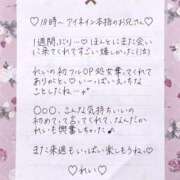 ♡18時〜 アイネイン本指のお兄さん♡
1週間ぶりー♡ほんとにまた会い
に来てくれてすごい嬉しかった(泣)
れいの初フルOP処女奪ってくれて
ありがと♡いーっぱいえっちな
ことしたねー♡
○○○、こんな気持ちいいの
初めてって言ってくれて、れい
も興奮しちゃった♪
また来週もいーっぱい楽しもうねぃ♡
♡れい♡